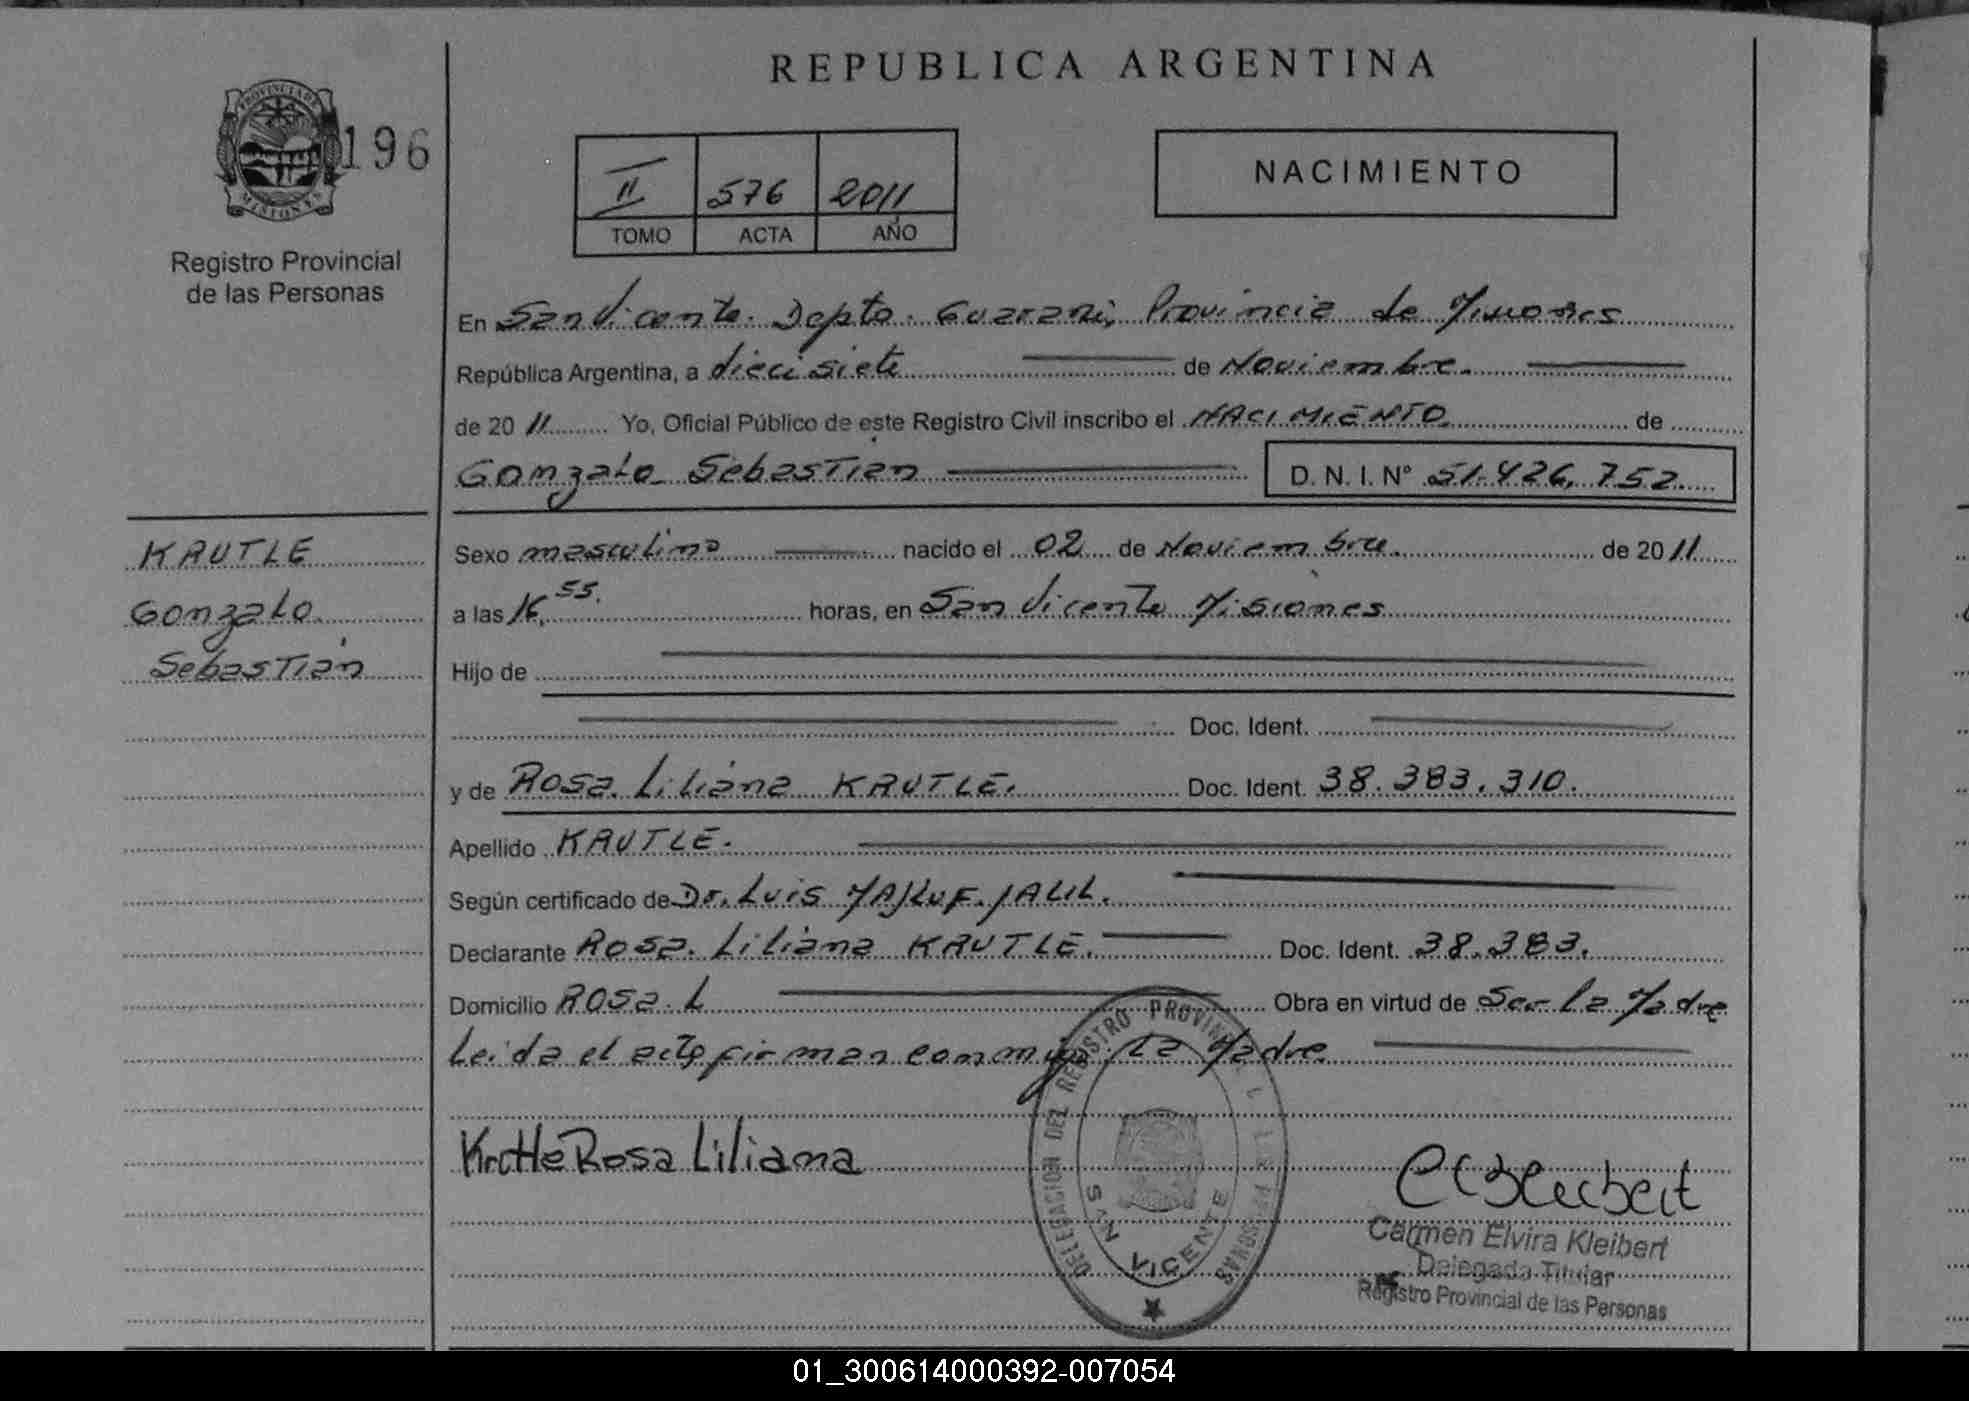 REPUBLICA ARGENTINA
PROVINCIA DE
MISIONES
196
Registro Provincial
de las Personas
II 576 2011
TOMO ACTA AÑO
NACIMIENTO
En San Vicente. Depto. Guarani, Provincia de Misiones
República Argentina, a diecisiete de Noviembre.
de 2011 Yo, Oficial Público de este Registro Civil inscribo el NACIMIENTO de
Gonzalo Sebastián D. N. I. N° 51.426.752.
KRUTLE
Gonzalo
Sebastián
Sexo masculino nacido el 02 de Noviembre. de 2011
a las 16,55. horas, en San Vicente Misiones
Hijo de
Doc. Ident.
y de Rosa Liliana KRUTLE. Doc. Ident. 38.383.310.
Apellido KRUTLE.
Según certificado de Dr. Luis JALIL.
Declarante Rosa Liliana KRUTLE. Doc. Ident. 38.383.
Domicilio Rosa L Obra en virtud de Ser la Madre
Leida el acta firman conmigo la Madre
DELEGACION DEL REGISTRO PROVINCIAL DE LAS PERSONAS
SAN VICENTE
Rosa Liliana
Carmen Elvira Kleibert
Delegada Titular
Registro Provincial de las Personas
01_300614000392-007054